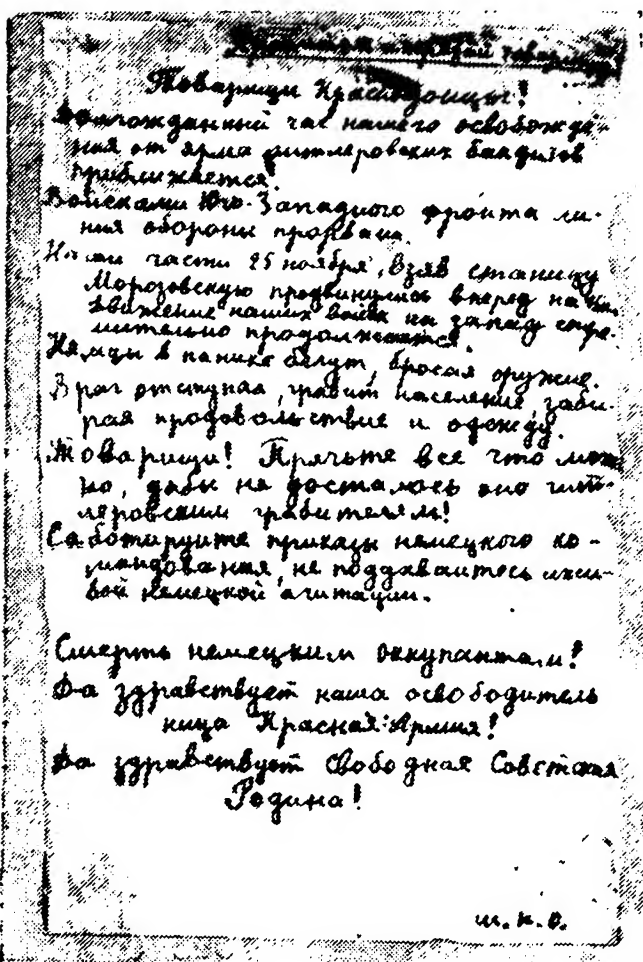 Прочитай и передай товарищу
Товарищи Краснодонцы!
Долгожданный час нашего освобожде-
ния от ярма гитлеровских бандитов
приближается!
Войсками Юго-Западного фронта ли-
ния обороны прорвана.
Наши части 25 ноября, взяв станицу
Морозовскую продвинулись вперед на
Движение наших войск на запад стре-
мительно продолжается.
Немцы в панике бегут, бросая оружие.
Враг отступая, грабит население, заби-
рая продовольствие и одежду.
Товарищи! Прячьте все что мож-
но, дабы не досталось оно гит-
леровским грабителям!
Саботируйте приказы немецкого ко-
мандования, не поддавайтесь лжи-
вой немецкой агитации.
Смерть немецким оккупантам!
Да здравствует наша освободитель
ница Красная-Армия!
Да здравствует свободная Советская
Родина!
ш. к. о.